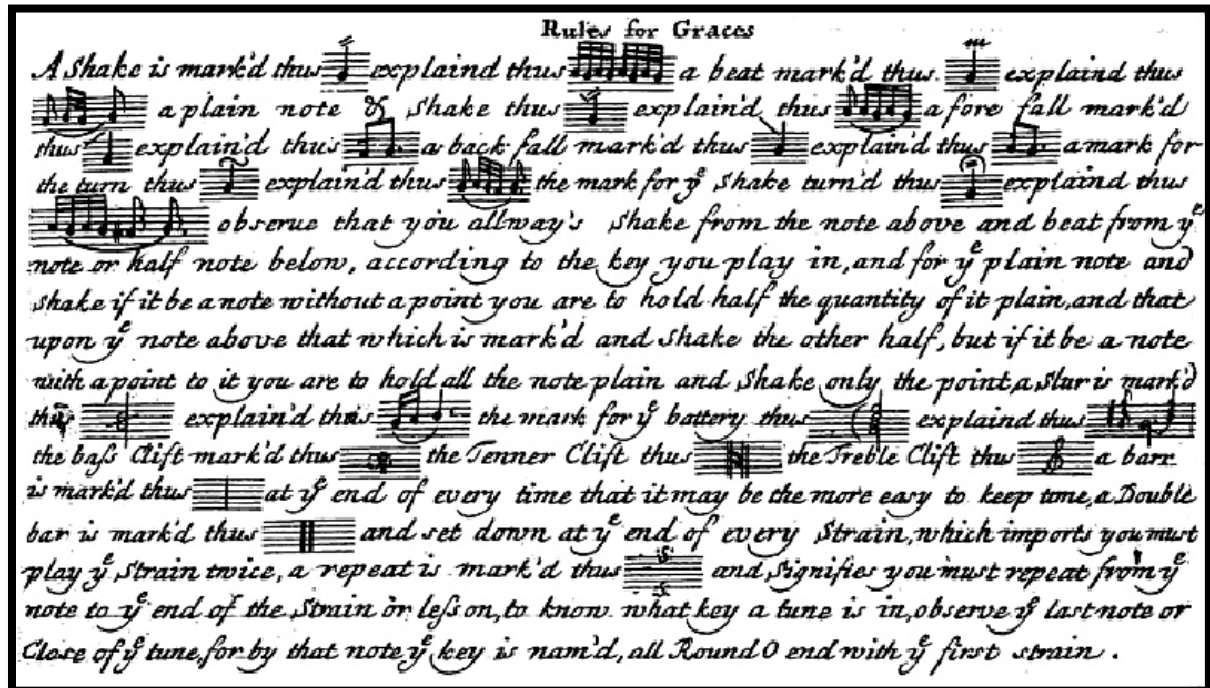 Rules for Graces
A Shake is mark'd thus explaind thus a beat mark'd thus explaind thus
a plain note & Shake thus explain'd thus a fore fall mark'd
thus explain'd thus a back fall mark'd thus explain'd thus a mark for
the turn thus explain'd thus the mark for yᵉ Shake turn'd thus explaind thus
observe that you allway's Shake from the note above and beat from yᵉ
note or half note below, according to the key you play in, and for yᵉ plain note and
shake if it be a note without a point you are to hold half the quantity of it plain, and that
upon yᵉ note above that which is mark'd and Shake the other half, but if it be a note
with a point to it you are to hold all the note plain and Shake only the point, a Slur is mark'd
thus explain'd thus the mark for yᵉ battery thus explaind thus
the baſs Clift mark'd thus the Tenner Clift thus the Treble Clift thus a barr
is mark'd thus at yᵉ end of every time that it may be the more easy to keep time, a Double
bar is mark'd thus and set down at yᵉ end of every Strain, which imports you must
play yᵉ Strain twice, a repeat is mark'd thus and Signifies you must repeat from yᵉ
note to yᵉ end of the Strain or leſson, to know what key a tune is in, observe yᵉ last note or
Close of yᵉ tune, for by that note yᵉ key is nam'd, all Round O end with yᵉ first strain.